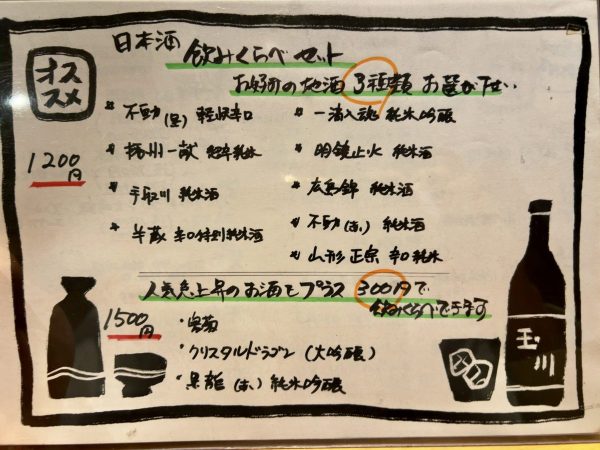 オススメ
日本酒 飲みくらべセット
お好みの地酒 3種類 お選び下さい
1200円
* 不動(生) 軽快辛口
* 播州一献 超辛純米
* 手取川 純米酒
* 半蔵 辛口特別純米酒
* 一滴入魂 純米吟醸
* 明鏡止水 純米酒
* 広島錦 純米酒
* 不動(赤) 純米酒
* 山形正宗 辛口純米
人気急上昇のお酒もプラス 300円で
飲みくらべできます
1500円
・クリスタルドラゴン(大吟醸)
・黒龍(赤) 純米吟醸
玉川